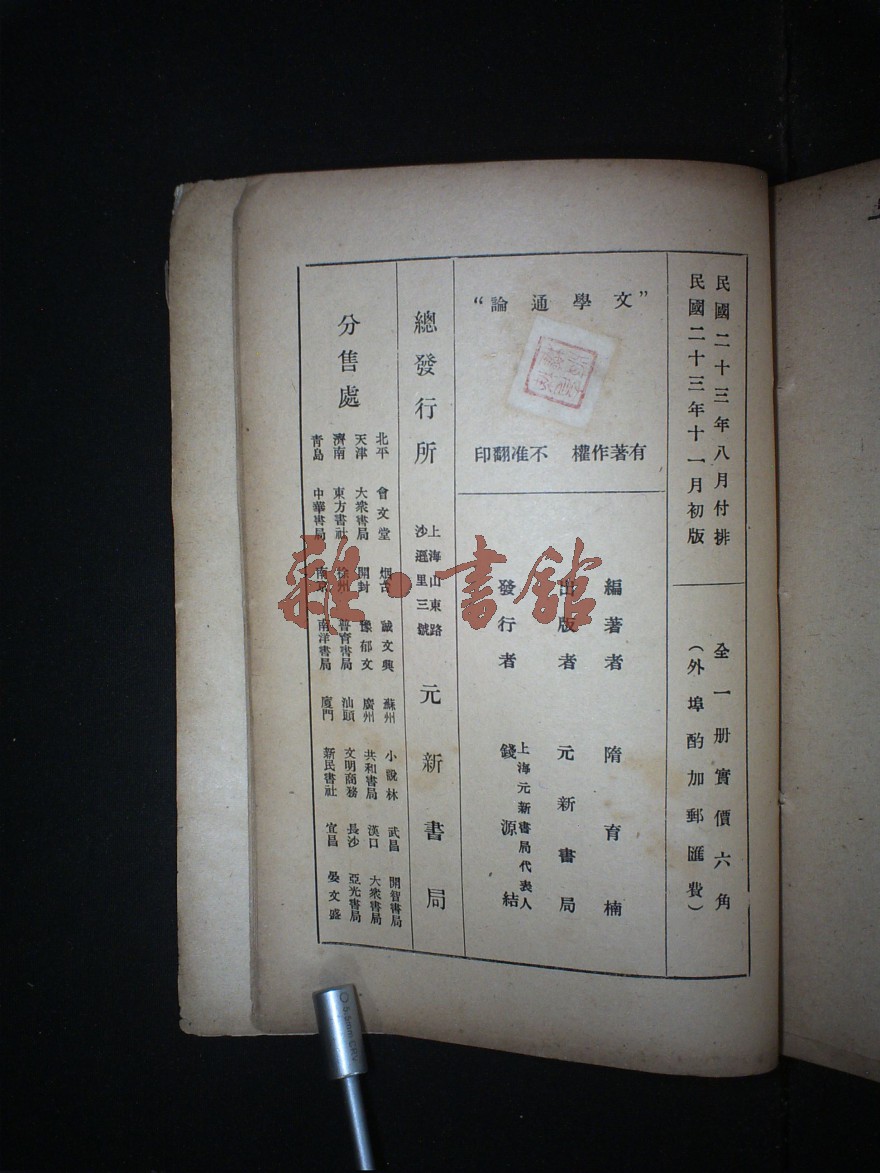 民國二十三年八月付排
民國二十三年十一月初版
全一册實價六角
（外埠酌加郵匯費）
“文學通論”
有著作權　不准翻印
編著者　隋育楠
出版者　元新書局
發行者　上海元新書局代表人　錢源結
總發行所　上海山東路沙遜里三號　元新書局
分售處
北平　會文堂　烟台　誠文興　蘇州　小說林　武昌　開智書局
天津　大衆書局　開封　豫郁文　廣州　共和書局　漢口　大衆書局
濟南　東方書社　徐州　普育書局　汕頭　文明商務　長沙　亞光書局
青島　中華書局　南京　南洋書局　廈門　新民書社　宜昌　晏文盛
雜·書館
0.5mm